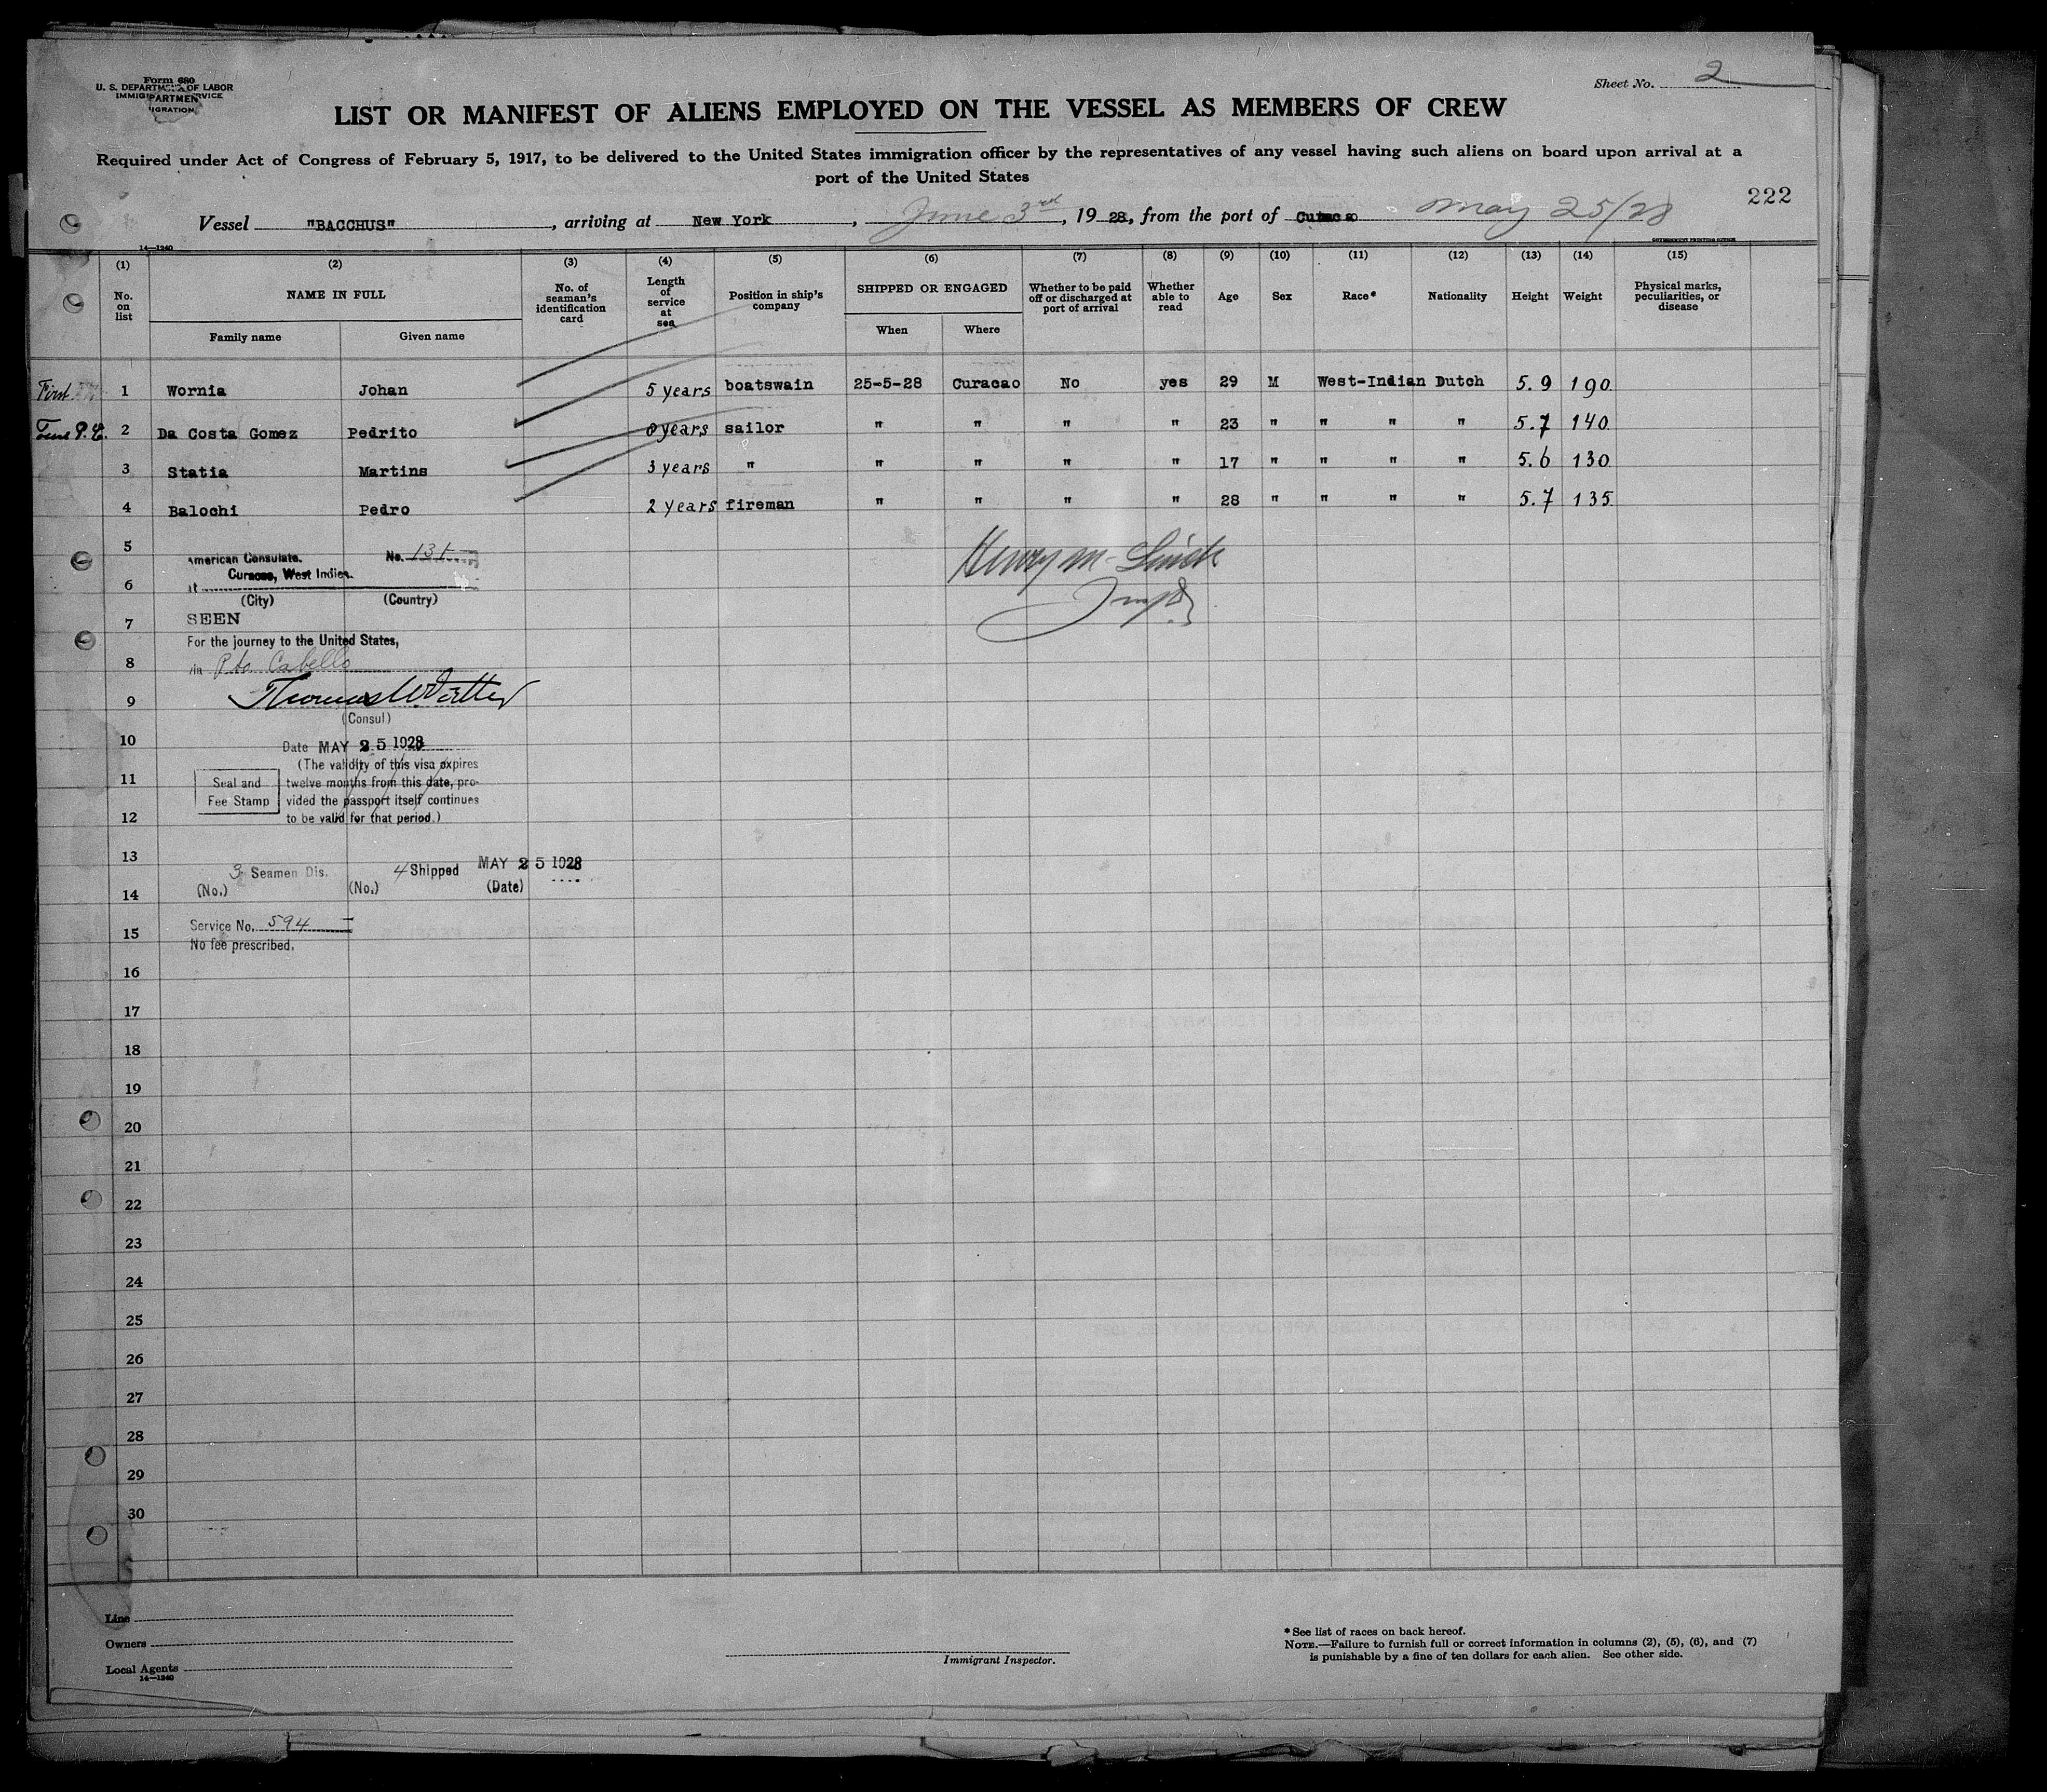 Form 680
U. S. DEPARTMENT OF LABOR
Sheet No. 2
LIST OR MANIFEST OF ALIENS EMPLOYED ON THE VESSEL AS MEMBERS OF CREW
Required under Act of Congress of February 5, 1917, to be delivered to the United States immigration officer by the representatives of any vessel having such aliens on board upon arrival at a
port of the United States
222
Vessel "BACCHUS", arriving at New York, June 3rd, 1928, from the port of Curacao May 25/28
14—1240
GOVERNMENT PRINTING OFFICE
(1) (2) (3) (4) (5) (6) (7) (8) (9) (10) (11) (12) (13) (14) (15)
No. on list
NAME IN FULL
Family name
Given name
No. of seaman's identification card
Length of service at sea
Position in ship's company
SHIPPED OR ENGAGED
When
Where
Whether to be paid off or discharged at port of arrival
Whether able to read
Age
Sex
Race*
Nationality
Height
Weight
Physical marks, peculiarities, or disease
First 1 Wornia Johan 5 years boatswain 25-5-28 Curacao No yes 29 M West-Indian Dutch 5.9 190
Time P.C. 2 Da Costa Gomez Pedrito years sailor " " " " 23 " " " " 5.7 140
3 Statia Martins 3 years " " " " " 17 " " " " 5.6 130
4 Balochi Pedro 2 years fireman " " " " 28 " " " " 5.7 135
5
American Consulate. No. 131
Curacao, West Indies.
6
at
(City) (Country)
SEEN
7
For the journey to the United States,
8
via Pto Cabello
9
(Consul)
10
Date MAY 25 1928
(The validity of this visa expires
11
Seal and Fee Stamp
twelve months from this date, pro-
vided the passport itself continues
12
to be valid for that period.)
13
3 Seamen Dis. 4 Shipped MAY 25 1928
(No.) (No.) (Date)
14
Service No. 594
15
No fee prescribed.
16
17
18
19
20
21
22
23
24
25
26
27
28
29
30
Line
Owners
Local Agents
14—1240
Immigrant Inspector.
* See list of races on back hereof.
NOTE.—Failure to furnish full or correct information in columns (2), (5), (6), and (7)
is punishable by a fine of ten dollars for each alien. See other side.